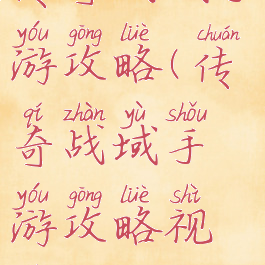 yóu gōng lüè chuán
游攻略(传
qí zhàn yù shǒu
奇战域手
yóu gōng lüè shì
游攻略视